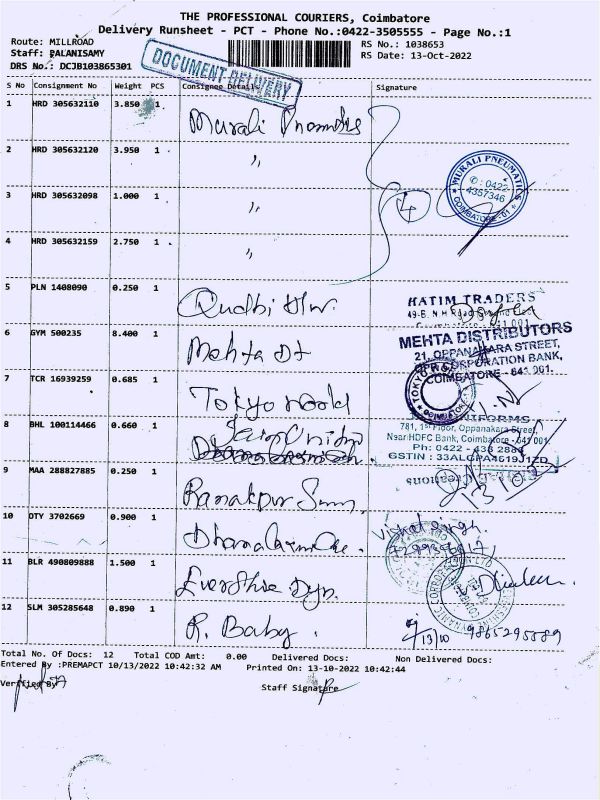 THE PROFESSIONAL COURIERS, Coimbatore
Delivery Runsheet - PCT - Phone No.:0422-3505555 - Page No.:1
Route: MILLROAD
Staff: PALANISAMY
DRS No.: DCJB103865301
RS No.: 1038653
RS Date: 13-Oct-2022
DOCUMENT DELIVERY
S No Consignment No Weight PCS Consignee Details Signature
1 HRD 305632110 3.850 1 Murali
2 HRD 305632120 3.950 1 "
3 HRD 305632098 1.000 1 "
4 HRD 305632159 2.750 1 "
4
MURALI PNEUMATICS
✆: 0422-
4357346
COIMBATORE
5 PLN 1408090 0.250 1
HATIM TRADERS
6 GYM 500235 8.400 1 Mehta Dt
MEHTA DISTRIBUTORS
21, OPPANAKARA STREET,
CORPORATION BANK,
COIMBATORE - 641 001.
7 TCR 16939259 0.685 1 Tokyo
TOKYO
COIMBATORE
8 BHL 100114466 0.660 1
781, 1st Floor, Oppanakara Street,
Near HDFC Bank, Coimbatore - 641 001
Ph: 0422 - 438
GSTIN :
9 MAA 288827885 0.250 1 Ranakpur
10 DTY 3702669 0.900 1
Vishal Singh.
11 BLR 490809888 1.500 1
12 SLM 305285648 0.890 1 R. Baby.
13/10
Total No. Of Docs: 12 Total COD Amt: 0.00 Delivered Docs: Non Delivered Docs:
Entered By :PREMAPCT 10/13/2022 10:42:32 AM Printed On: 13-10-2022 10:42:44
Verified By
Staff Signature